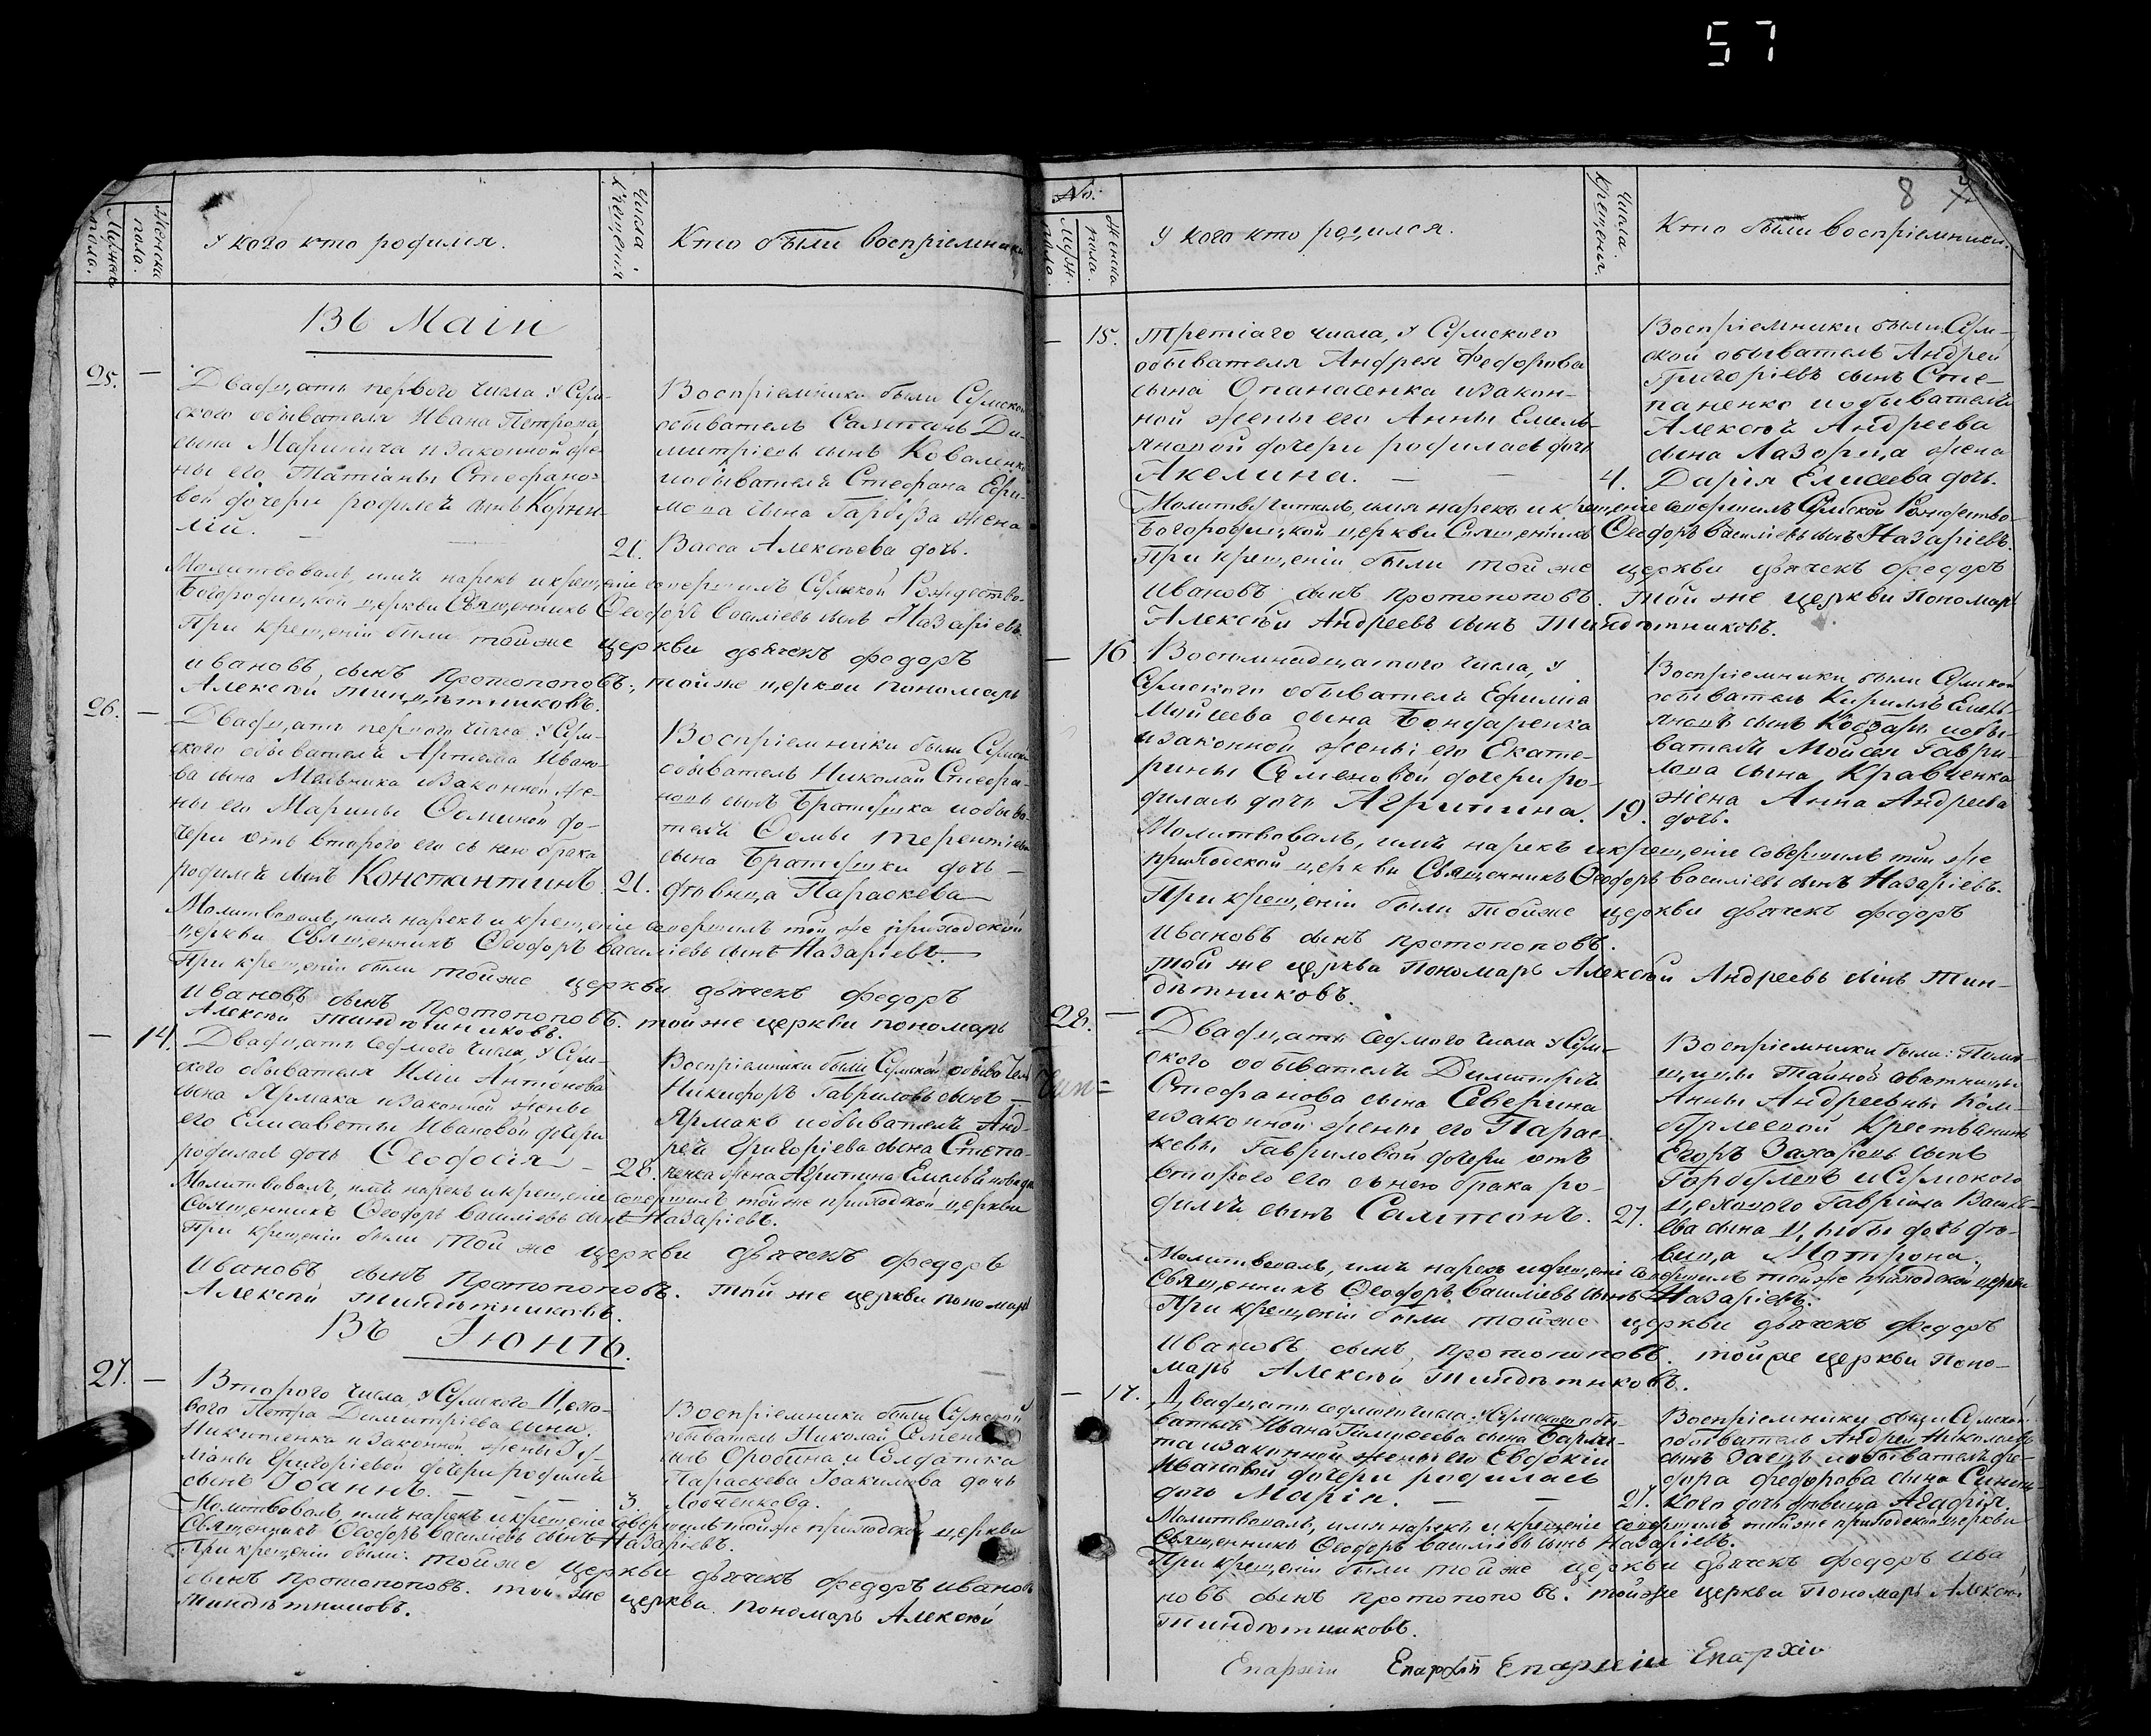 57
Мужска пола.
Женска пола.
У кого кто родился.
Числа крещенія
Кто были воспріемники
Въ Маіи
25. —
Двадцать первого числа, у Сум-
ского обывателя Ивана Петрова
сына Маринича и законной же-
ны его Татіаны Стефано-
вой дочери родился сынъ Корни-
лій. — 21.
Воспріемники были Сумской
обыватель Сампсонъ Ди-
митріевъ сынъ Коваленко
и обывателя Стефана Ефи-
мова сына жена
Васса Алексѣева дочь.
Молитвовалъ, имя нарекъ и крещеніе совершилъ Сумской Рождество-
Богородицкой церкви Священникъ Ѳеодоръ Василіевъ сынъ Назаріевъ.
При крещеніи были той же церкви дьячекъ Федоръ
Ивановъ сынъ Протопоповъ, той же церкви пономарь
Алексѣй Тиндѣтниковъ.
26. —
Двадцать первого числа, у Сум-
ского обывателя Артема Ивано-
ва сына Мельника и законной же-
ны его Марины Ѳоминой до-
чери отъ второго его съ нею брака
родился сынъ Константинъ. 21.
Воспріемники были Сумской
обыватель Николай Стефа-
новъ сынъ Братушка и обыва-
теля Ѳомы Терентіева
сына Братушки дочь —
дѣвица Параскева
Молитвовалъ, имя нарекъ и крещеніе совершилъ той же приходской
церкви Священникъ Ѳеодоръ Василіевъ сынъ Назаріевъ.
При крещеніи были той же церкви дьячекъ Федоръ
Ивановъ сынъ Протопоповъ. той же церкви пономарь
Алексѣй Тиндѣтниковъ.
— 14.
Двадцать седмого числа, у Сум-
ского обывателя Иліи Антонова
сына Ярмака и законной жены
его Елисаветы Ивановой дочери
родилась дочь Ѳеодосія — 28.
Воспріемники были Сумской обыватель
Никифоръ Гавриловъ сынъ —
Ярмакъ и обывателя Анд-
рея Григоріева сына Степа-
ненка жена Агрипина Емельянова дочь
Молитвовалъ, имя нарекъ и крещеніе совершилъ той же приходской церкви
Священникъ Ѳеодоръ Василіевъ сынъ Назаріевъ.
При крещеніи были той же церкви дьячекъ Федоръ
Ивановъ сынъ Протопоповъ. той же церкви пономарь
Алексѣй Тиндѣтниковъ.
Въ Іюнѣ.
27. —
Второго числа, у Сумского Цехо-
вого Петра Димитріева сына
Никитенка и законной жены Іу-
ліаны Григоріевой дочери родился
сынъ Іоаннъ. — 3.
Воспріемники были Сумской
обыватель Николай Семено
Оробина и Солдатка
Параскева Іоакимова дочь
Лобченкова.
Молитвовалъ, имя нарекъ и крещеніе совершилъ той же приходской церкви
Священникъ Ѳеодоръ Василіевъ сынъ Назаріевъ.
При крещеніи были: той же церкви дьячекъ Федоръ Ивановъ
сынъ Протопоповъ. той же церкви. пономарь Алексѣй
Тиндѣтниковъ.
8
№.
Мужн. пола.
Женска пола.
У кого кто родился.
Числа. Крещенія.
Кто были воспріемники.
— 15.
Третіаго числа, у Сумского
обывателя Андрея Федорова
сына Опанасенка и закон-
ной жены его Анны Емель-
яновой дочери родилась дочь
Акелина. — 4.
Воспріемники были Сум-
ской обыватель Андрей
Григоріевъ сынъ Сте-
паненко и обывателя
Алексѣя Андреева
сына Лазорца жена
Дарія Елисеева дочь.
Молитву читалъ, имя нарекъ и крещеніе совершилъ Сумской Рождество-
Богородицкой церкви Священникъ Ѳеодоръ Василіевъ сынъ Назаріевъ.
При крещеніи были той же церкви дьячекъ Федоръ
Ивановъ сынъ Протопоповъ. той же церкви Пономарь
Алексѣй Андреевъ сынъ Тиндѣтниковъ.
— 16.
Восемнадцатого числа, у
Сумского обывателя Ефиміа
Мойсеева сына Бондаренка
и законной жены его Екате-
рины Семеновой дочери ро-
дилась дочь Агрипина. 19.
Воспріемники были Сумской
обыватель Кириллъ Емель-
яновъ сынъ Кобзарь и обы-
вателя Мойсея Гаври-
лова сына Кравченка
жена Анна Андреева
дочь.
Молитвовалъ, имя нарекъ и крещеніе совершилъ той же
приходской церкви Священникъ Ѳеодоръ Василіевъ сынъ Назаріевъ.
При крещеніи были той же церкви дьячекъ Федоръ
Ивановъ сынъ Протопоповъ.
той же церкви Пономарь Алексѣй Андреевъ сынъ Тин-
дѣтниковъ.
28. —
Двадцать седмого числа у Сум-
ского обывателя Димитрія
Стефанова сына Северина
и законной жены его Парас-
кевы Гавриловой дочери отъ
второго его съ нею брака ро-
дился сынъ Сампсонъ. 27.
Воспріемники были: Поме-
щицы Тайной совѣтницы
Анны Андреевны Ком-
бурлеевой Крестьянинъ
Егоръ Захаровъ сынъ
Горбулевъ и Сумского
Цехового Гавріила Василь-
ева сына Цыбы дочь дѣ-
вица Мотрона.
Молитвовалъ, имя нарекъ и крещеніе совершилъ той же приходской церкви
Священникъ Ѳеодоръ Василіевъ сынъ Назаріевъ.
При крещеніи были той же церкви дьячекъ Федоръ
Ивановъ сынъ Протопоповъ. той же церкви Поно-
марь Алексѣй Тиндѣтнковъ.
— 17.
Двадцать седмого числа, у Сумского обы-
вателя Ивана Тимофеева сына Барми-
та и законной жены его Евдокіи
Ивановой дочери родилась
дочь Марія. — 27.
Воспріемники были Сумской
обыватель Андрей Николаевъ
сынъ Заецъ и обывателя Фе-
дора Федорова сына
кого дочь дѣвица Агафія.
Молитвовалъ, имя нарекъ и крещеніе совершилъ той же приходской церкви
Священникъ Ѳеодоръ Василіевъ сынъ Назаріевъ.
При крещеніи были той же церкви дьячекъ Федоръ Ива
новъ сынъ Протопоповъ. той же церкви Пономарь Алексѣй
Тиндѣтниковъ.
Епархіи Епархіи Епархіи Епархіи